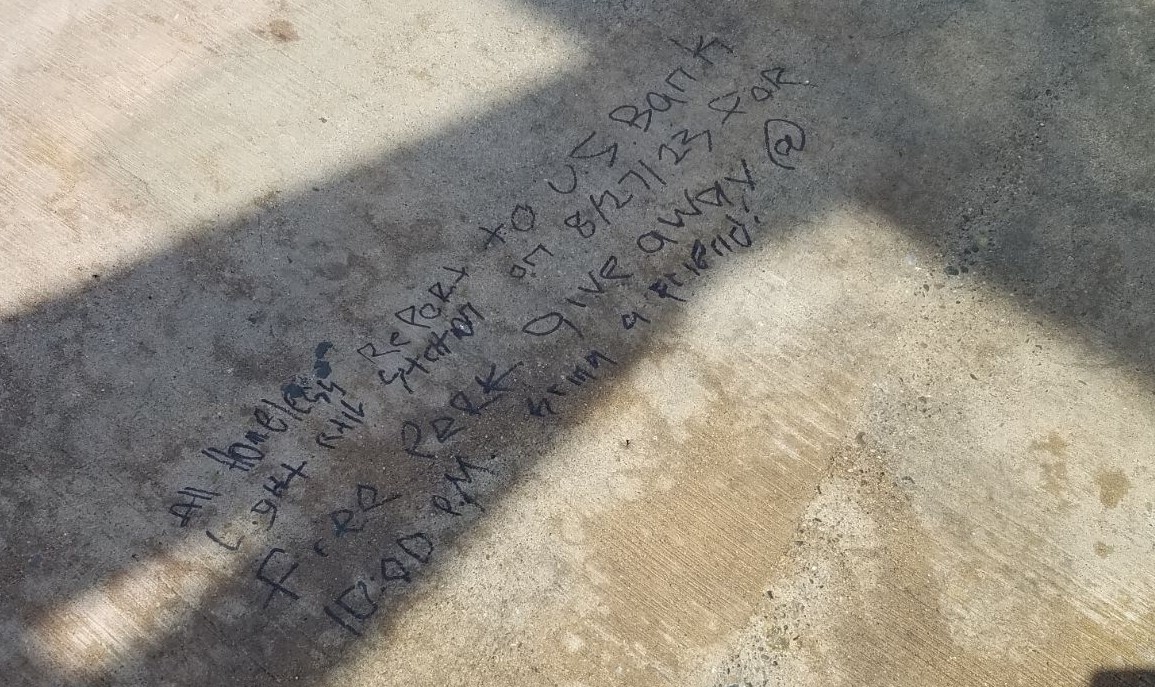 All Homeless Report to U.S. Bank
Light Rail Station on 8/27/23 FOR
FrRe PeRK give away @
10:00 P.M. Bring a Friend!